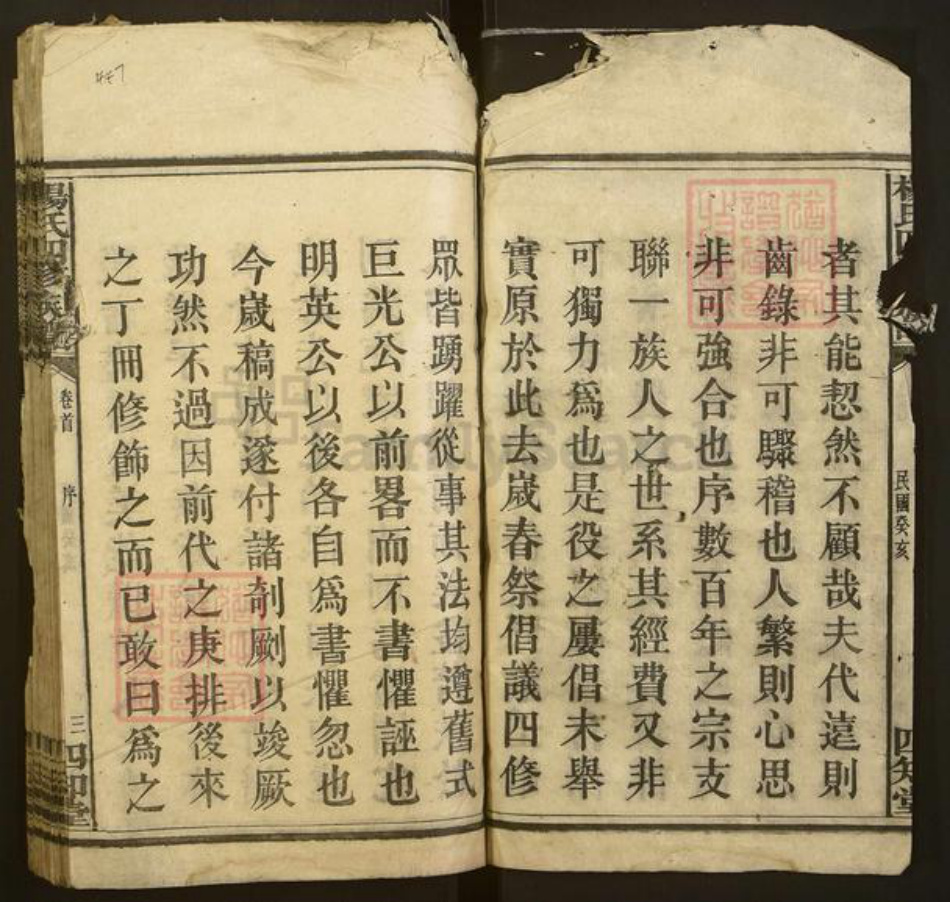 者其能恝然不顧哉夫代遠則
齒錄非可驟稽也人繁則心思
非可強合也序數百年之宗支
聯一族人之世系其經費又非
可獨力爲也是役之屢倡未舉
實原於此去歲春祭倡議四修
眾皆踴躍從事其法均遵舊式
巨光公以前畧而不書懼誣也
明英公以後各自爲書懼忽也
今歲稿成遂付諸剞劂以竣厥
功然不過因前代之庚排後來
之丁冊修飾之而已敢曰爲之
楊氏四修族譜
卷首
序
三
民國癸亥
四知堂
FamilySearch
447